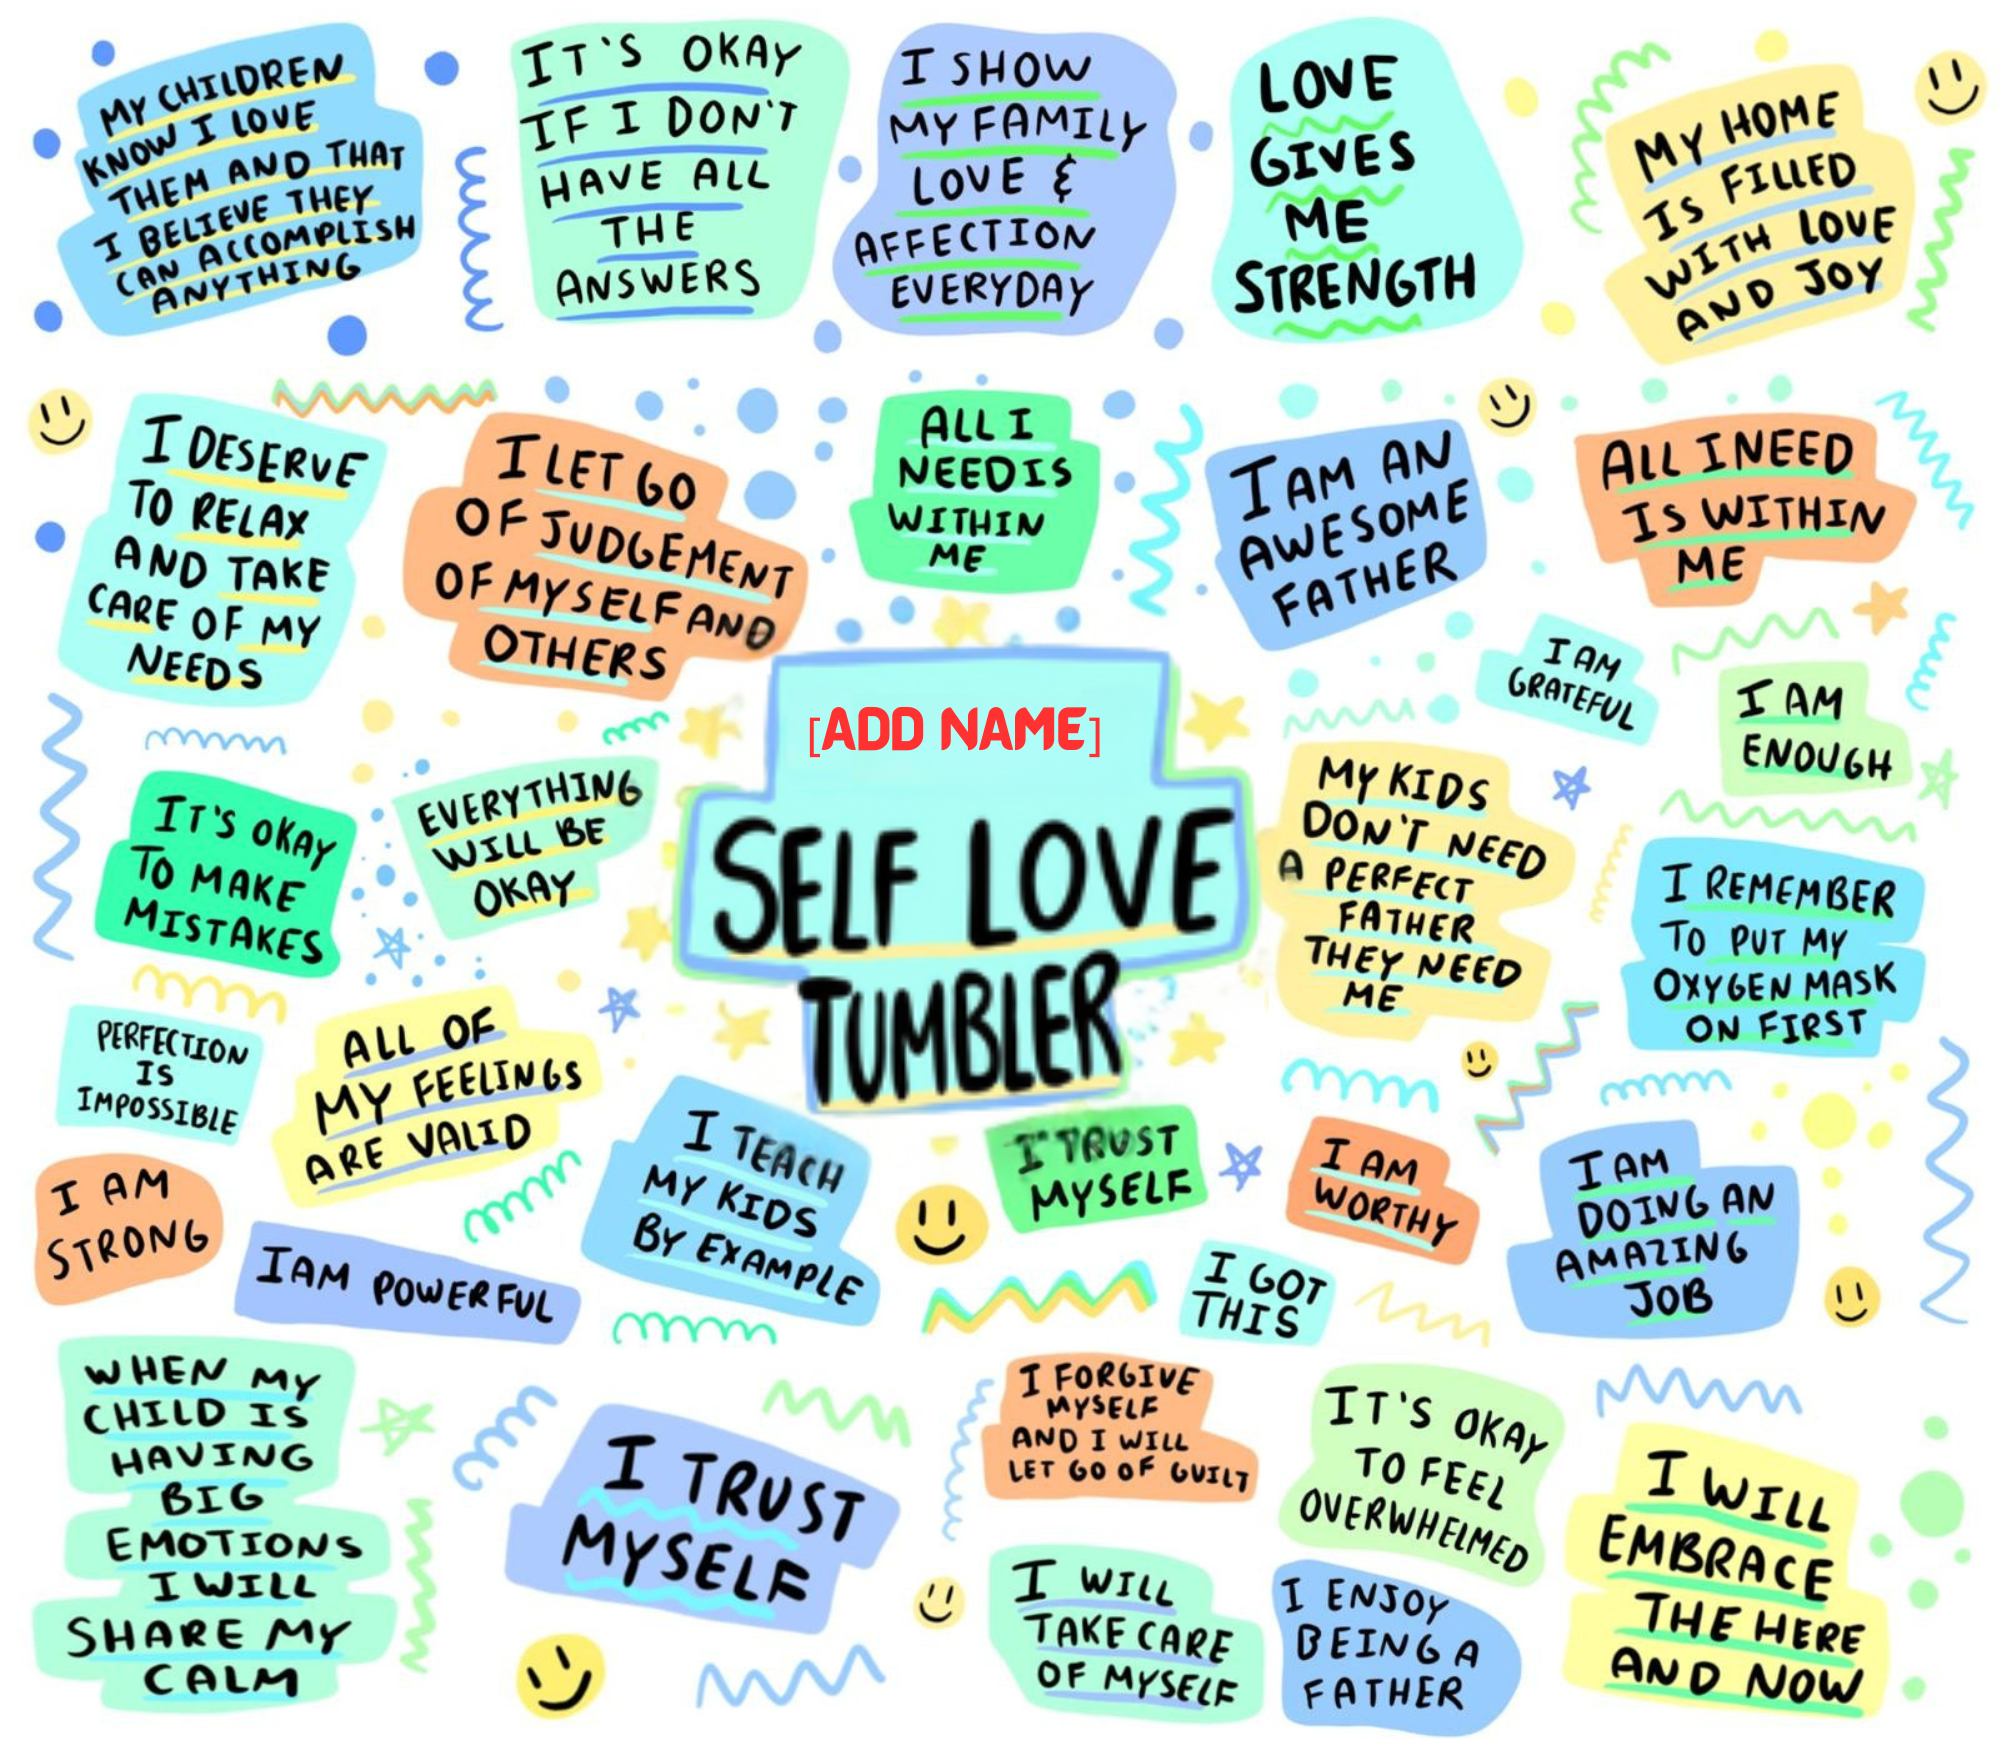 MY CHILDREN
KNOW I LOVE
THEM AND THAT
I BELIEVE THEY
CAN ACCOMPLISH
ANYTHING
IT'S OKAY
IF I DON'T
HAVE ALL
THE
ANSWERS
I SHOW
MY FAMILY
LOVE &
AFFECTION
EVERYDAY
LOVE
GIVES
ME
STRENGTH
MY HOME
IS FILLED
WITH LOVE
AND JOY
I DESERVE
TO RELAX
AND TAKE
CARE OF MY
NEEDS
I LET GO
OF JUDGEMENT
OF MYSELF AND
OTHERS
ALL I
NEED IS
WITHIN
ME
I AM AN
AWESOME
FATHER
ALL I NEED
IS WITHIN
ME
I AM
GRATEFUL
I AM
ENOUGH
[ADD NAME]
SELF LOVE
TUMBLER
IT'S OKAY
TO MAKE
MISTAKES
EVERYTHING
WILL BE
OKAY
MY KIDS
DON'T NEED
A PERFECT
FATHER
THEY NEED
ME
I REMEMBER
TO PUT MY
OXYGEN MASK
ON FIRST
PERFECTION
IS
IMPOSSIBLE
ALL OF
MY FEELINGS
ARE VALID
I TEACH
MY KIDS
BY EXAMPLE
I TRUST
MYSELF
I AM
WORTHY
I AM
DOING AN
AMAZING
JOB
I AM
STRONG
I AM POWERFUL
I GOT
THIS
WHEN MY
CHILD IS
HAVING
BIG
EMOTIONS
I WILL
SHARE MY
CALM
I TRUST
MYSELF
I FORGIVE
MYSELF
AND I WILL
LET GO OF GUILT
IT'S OKAY
TO FEEL
OVERWHELMED
I WILL
EMBRACE
THE HERE
AND NOW
I WILL
TAKE CARE
OF MYSELF
I ENJOY
BEING A
FATHER